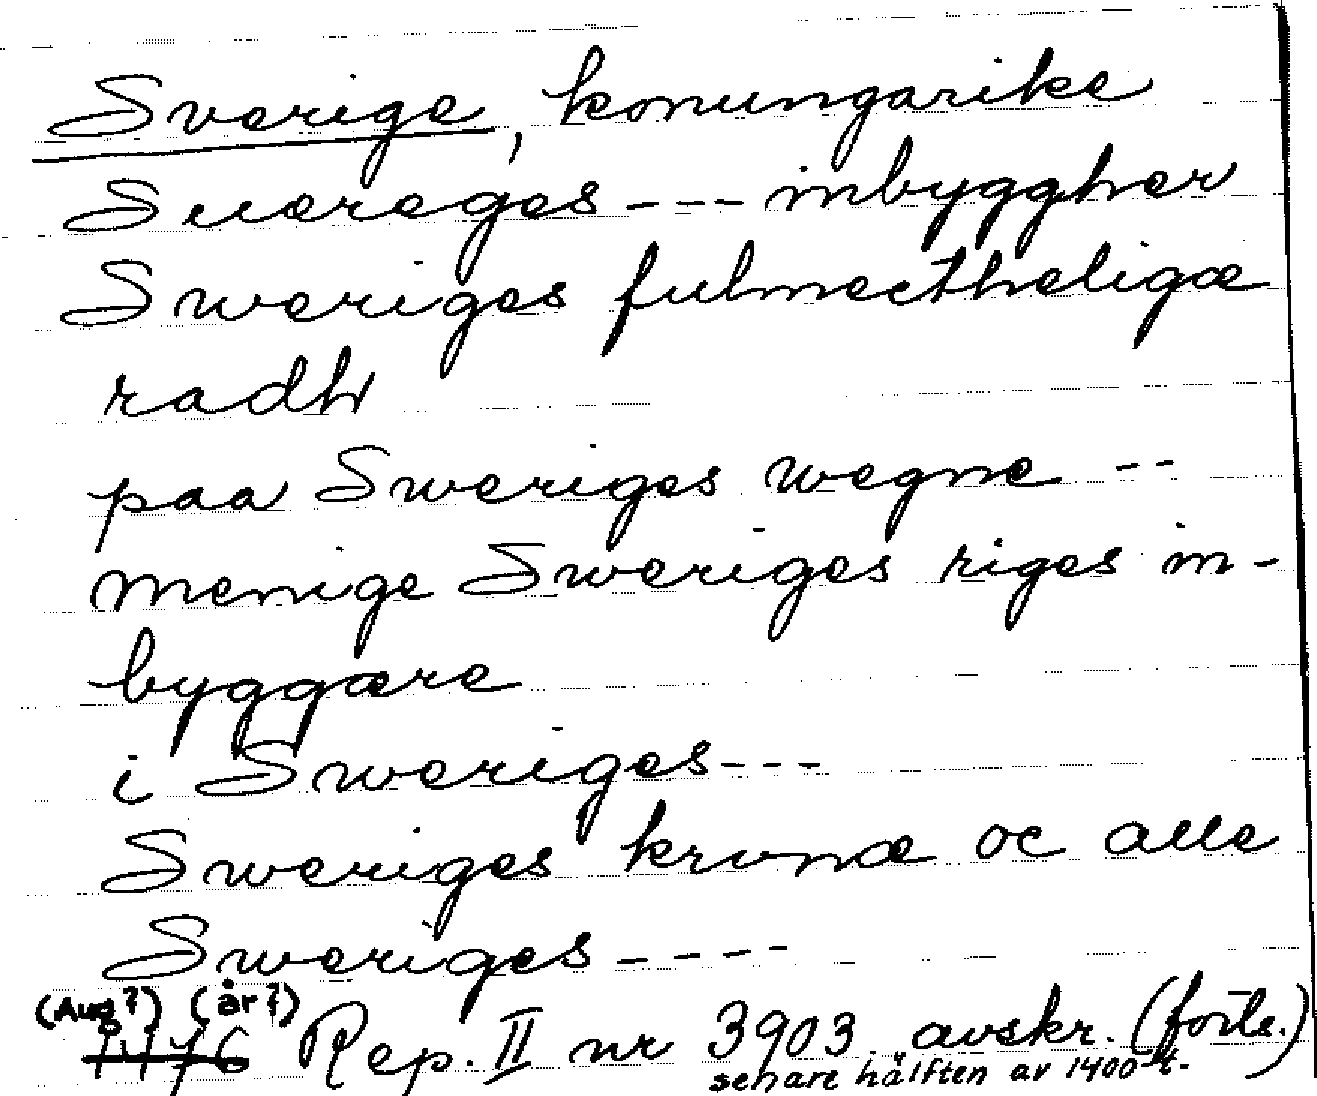 Sverige, konungarike
Suereges --- inbyggher
Sweriges fulmectheligæ
radh
paa Sweriges wegne --
menige Sweriges riges in-
byggære
i Sweriges ---
Sweriges kronæ oc alle
Sweriges ----
(Aug?) (år?)
1476 Rep. II nr 3903 avskr. (forts.)
senare hälften av 1400-t.